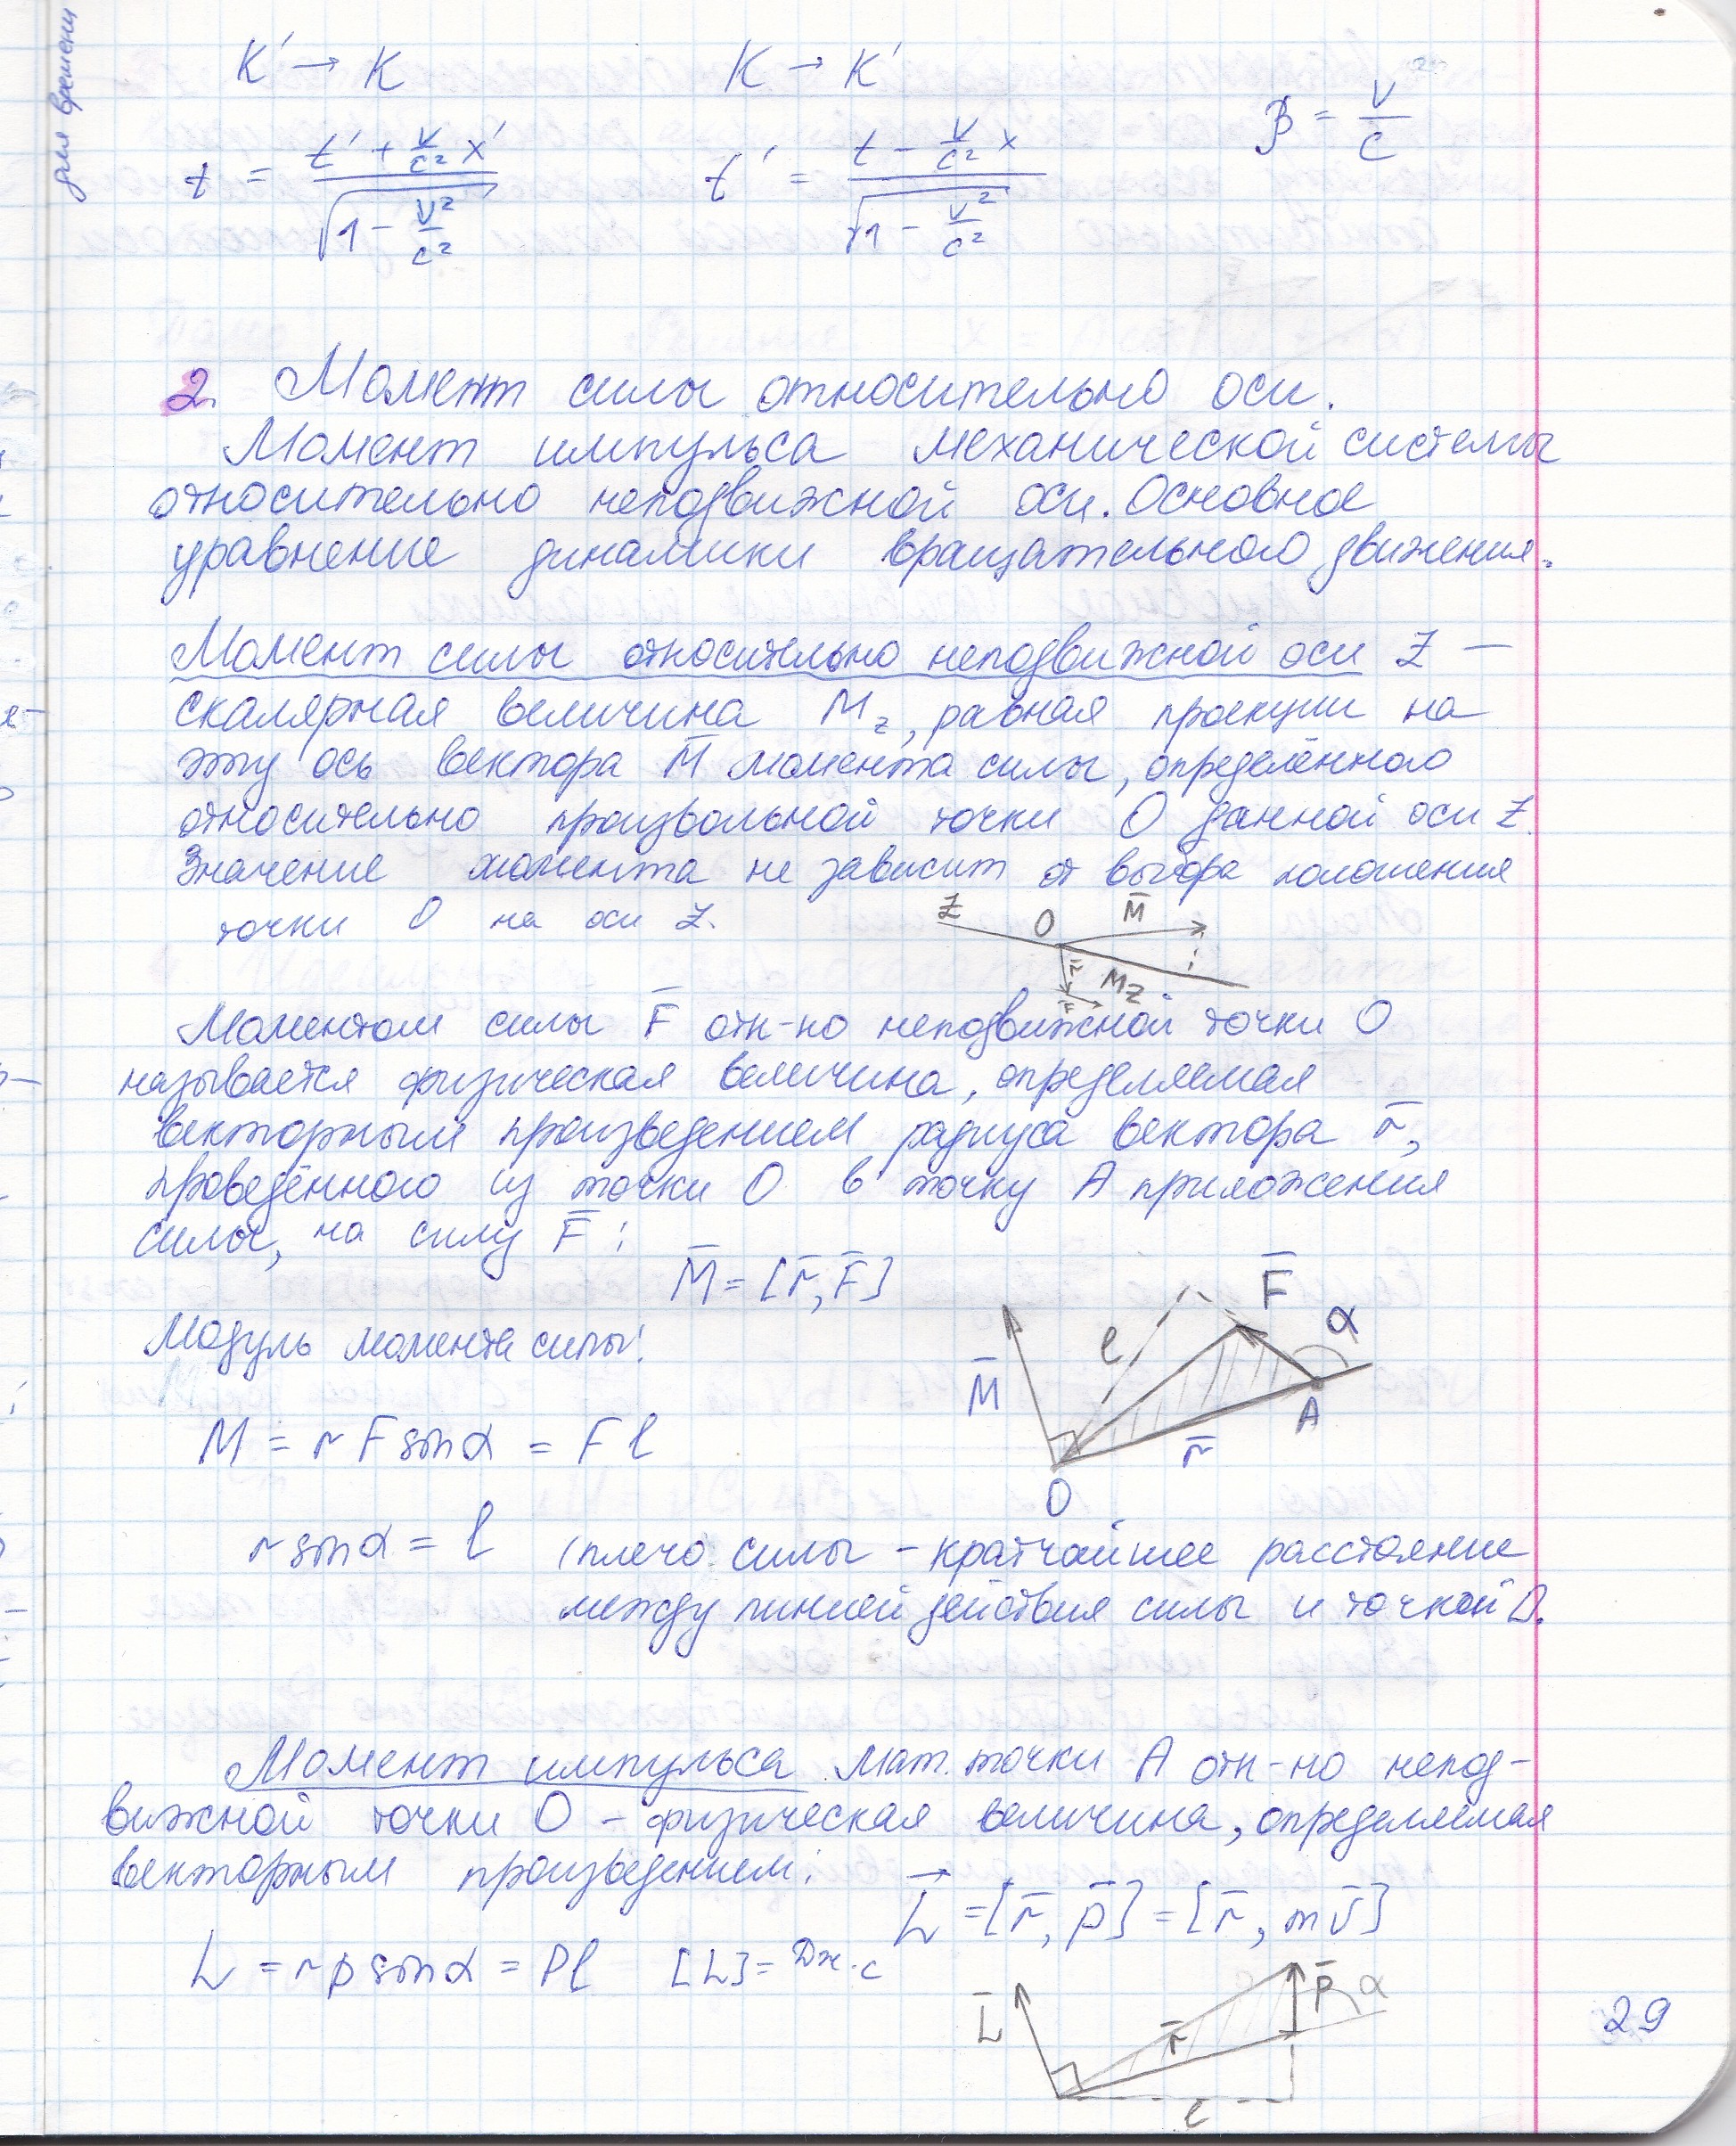 для времени
K' → K K → K' β = v/c
t = (t' + v/c² x') / √(1 - v²/c²) t' = (t - v/c² x) / √(1 - v²/c²)
2. Момент силы относительно оси.
Момент импульса механической системы
относительно неподвижной оси. Основное
уравнение динамики вращательного движения.
Момент силы относительно неподвижной оси Z —
скалярная величина M_z, равная проекции на
эту ось вектора M̄ момента силы, определённого
относительно произвольной точки O данной оси Z.
Значение момента не зависит от выбора положения
точки O на оси Z.
Z O M̄
r̄ M_Z
F̄
Моментом силы F̄ отн-но неподвижной точки O
называется физическая величина, определяемая
векторным произведением радиуса вектора r̄,
проведённого из точки O в точку A приложения
силы, на силу F̄:
M̄ = [r̄, F̄]
Модуль момента силы:
M = r F sin α = F l
M̄ l F̄ α A r̄ O
r sin α = l (плечо силы - кратчайшее расстояние
между линией действия силы и точкой O.
Момент импульса мат. точки A отн-но непод-
вижной точки O - физическая величина, определяемая
векторным произведением:
L⃗ = [r̄, p̄] = [r̄, mv̄]
L = r p sin α = Pl [L] = Дж·с
L̄ r̄ p̄ α l
29